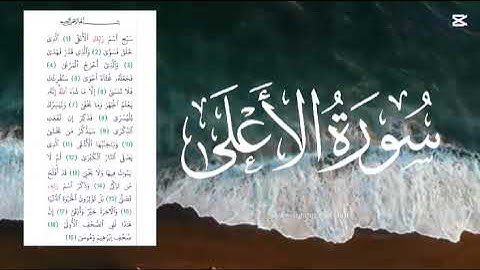 سَبِّحِ اسْمَ رَبِّكَ الْأَعْلَى (1) الَّذِي
خَلَقَ فَسَوَّى (2) وَالَّذِي قَدَّرَ فَهَدَى
(3) وَالَّذِي أَخْرَجَ الْمَرْعَى (4)
فَجَعَلَهُ غُثَاءً أَحْوَى (5) سَنُقْرِئُكَ
فَلَا تَنْسَى (6) إِلَّا مَا شَاءَ اللَّهُ إِنَّهُ
يَعْلَمُ الْجَهْرَ وَمَا يَخْفَى (7) وَنُيَسِّرُكَ
لِلْيُسْرَى (8) فَذَكِّرْ إِنْ نَفَعَتِ
الذِّكْرَى (9) سَيَذَّكَّرُ مَنْ يَخْشَى
(10) وَيَتَجَنَّبُهَا الْأَشْقَى (11) الَّذِي
يَصْلَى النَّارَ الْكُبْرَى (12) ثُمَّ لَا
يَمُوتُ فِيهَا وَلَا يَحْيَى (13) قَدْ أَفْلَحَ
مَنْ تَزَكَّى (14) وَذَكَرَ اسْمَ رَبِّهِ
فَصَلَّى (15) بَلْ تُؤْثِرُونَ الْحَيَاةَ الدُّنْيَا
(16) وَالْآخِرَةُ خَيْرٌ وَأَبْقَى (17) إِنَّ
هَذَا لَفِي الصُّحُفِ الْأُولَى (18)
صُحُفِ إِبْرَاهِيمَ وَمُوسَى (19)
سُورَةُ الأَعْلَى